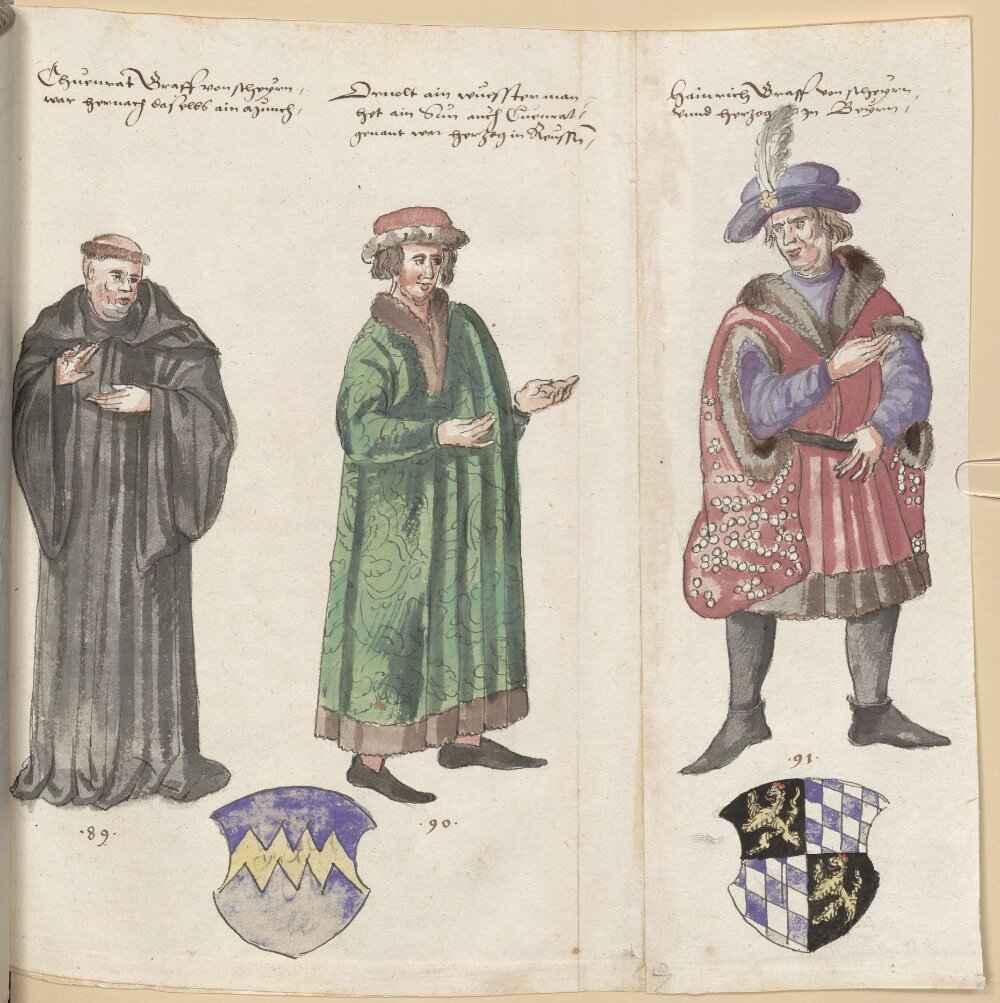 Chuenrat Graff von scheyrn,
war hernach daselbs ain munch,
Ornolt ain wuester man,
het ain Sun auch Cuenrat
genant war herzog in Reussn,
Hainrich Graff von scheyrn,
vnnd herzog in Beyrn,
·89·
·90·
·91·